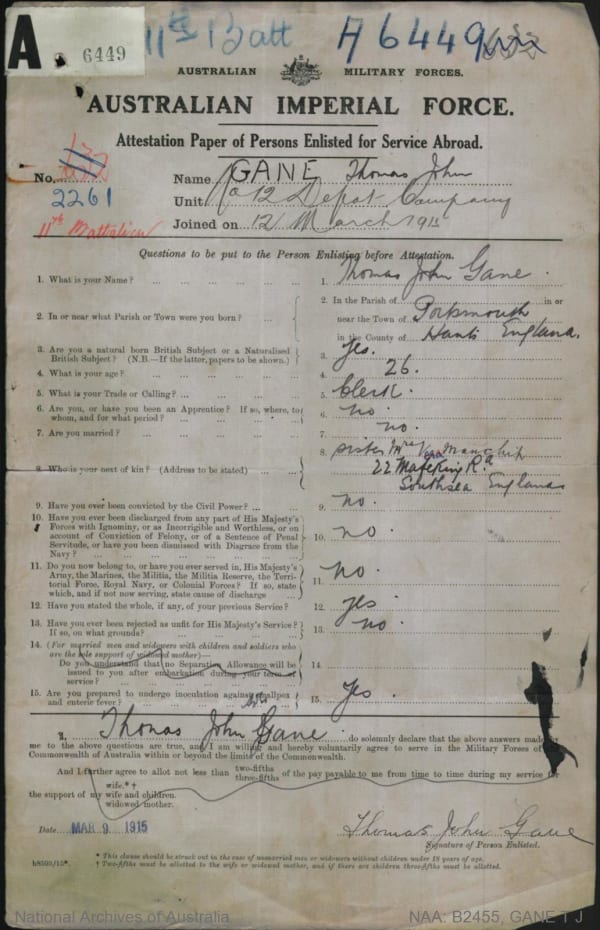 A 6449 11th Batt A 6449
AUSTRALIAN MILITARY FORCES.
AUSTRALIAN IMPERIAL FORCE.
Attestation Paper of Persons Enlisted for Service Abroad.
No. 2261
Name GANE Thomas John
11th Battalion
Unit 12 Depot Company
Joined on 12 March 1915
Questions to be put to the Person Enlisting before Attestation.
1. What is your Name? ... 1. Thomas John Gane.
2. In or near what Parish or Town were you born? ... 2. In the Parish of in or
near the Town of Portsmouth
in the County of Hants England.
3. Are you a natural born British Subject or a Naturalised
British Subject? (N.B.—If the latter, papers to be shown.) 3. Yes.
4. What is your age? ... 4. 26.
5. What is your Trade or Calling? ... 5. Clerk.
6. Are you, or have you been an Apprentice? If so, where, to
whom, and for what period? ... 6. no.
7. Are you married? ... 7. no.
8. Who is your next of kin? (Address to be stated) ... 8. sister Mrs Manship
22 Mafeking Rd
Southsea England
9. Have you ever been convicted by the Civil Power? ... 9. no.
10. Have you ever been discharged from any part of His Majesty's
Forces with Ignominy, or as Incorrigible and Worthless, or on
account of Conviction of Felony, or of a Sentence of Penal
Servitude, or have you been Dismissed with Disgrace from the
Navy? ... 10. no.
11. Do you now belong to, or have you ever served in, His Majesty's
Army, the Marines, the Militia, the Militia Reserve, the Terri-
torial Force, Royal Navy, or Colonial Forces? If so, state
which, and if not now serving, state cause of discharge 11. no.
12. Have you stated the whole, if any, of your previous Service? 12. yes
13. Have you ever been rejected as unfit for His Majesty's Service?
If so, on what grounds? ... 13. no.
14. (For married men and widowers with children and soldiers who
are the sole support of widowed mother)—
Do you understand that no Separation Allowance will be
issued to you after embarkation during your term of
service? ... 14.
15. Are you prepared to undergo inoculation against smallpox
and enteric fever? ... 15. Yes.
I, Thomas John Gane do solemnly declare that the above answers made by
me to the above questions are true, and I am willing and hereby voluntarily agree to serve in the Military Forces of the
Commonwealth of Australia within or beyond the limits of the Commonwealth.
And I further agree to allot not less than two-fifths three-fifths of the pay payable to me from time to time during my service for
the support of my wife.*† wife and children. widowed mother.
Date MAR 9 1915
Thomas John Gane
Signature of Person Enlisted.
* This clause should be struck out in the case of unmarried men or widowers without children under 18 years of age.
† Two-fifths must be allotted to the wife or widowed mother, and if there are children three-fifths must be allotted.
National Archives of Australia NAA: B2455, GANE T J